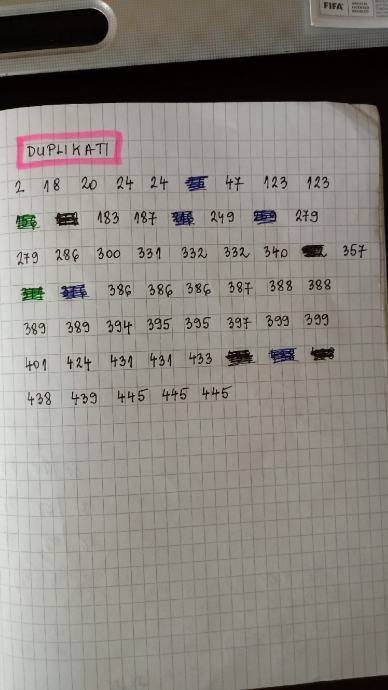 FIFA
DUPLIKATI
2 18 20 24 24 47 123 123
183 187 249 279
279 286 300 331 332 332 340 357
386 386 386 387 388 388
389 389 394 395 395 397 399 399
401 424 431 431 433
438 439 445 445 445